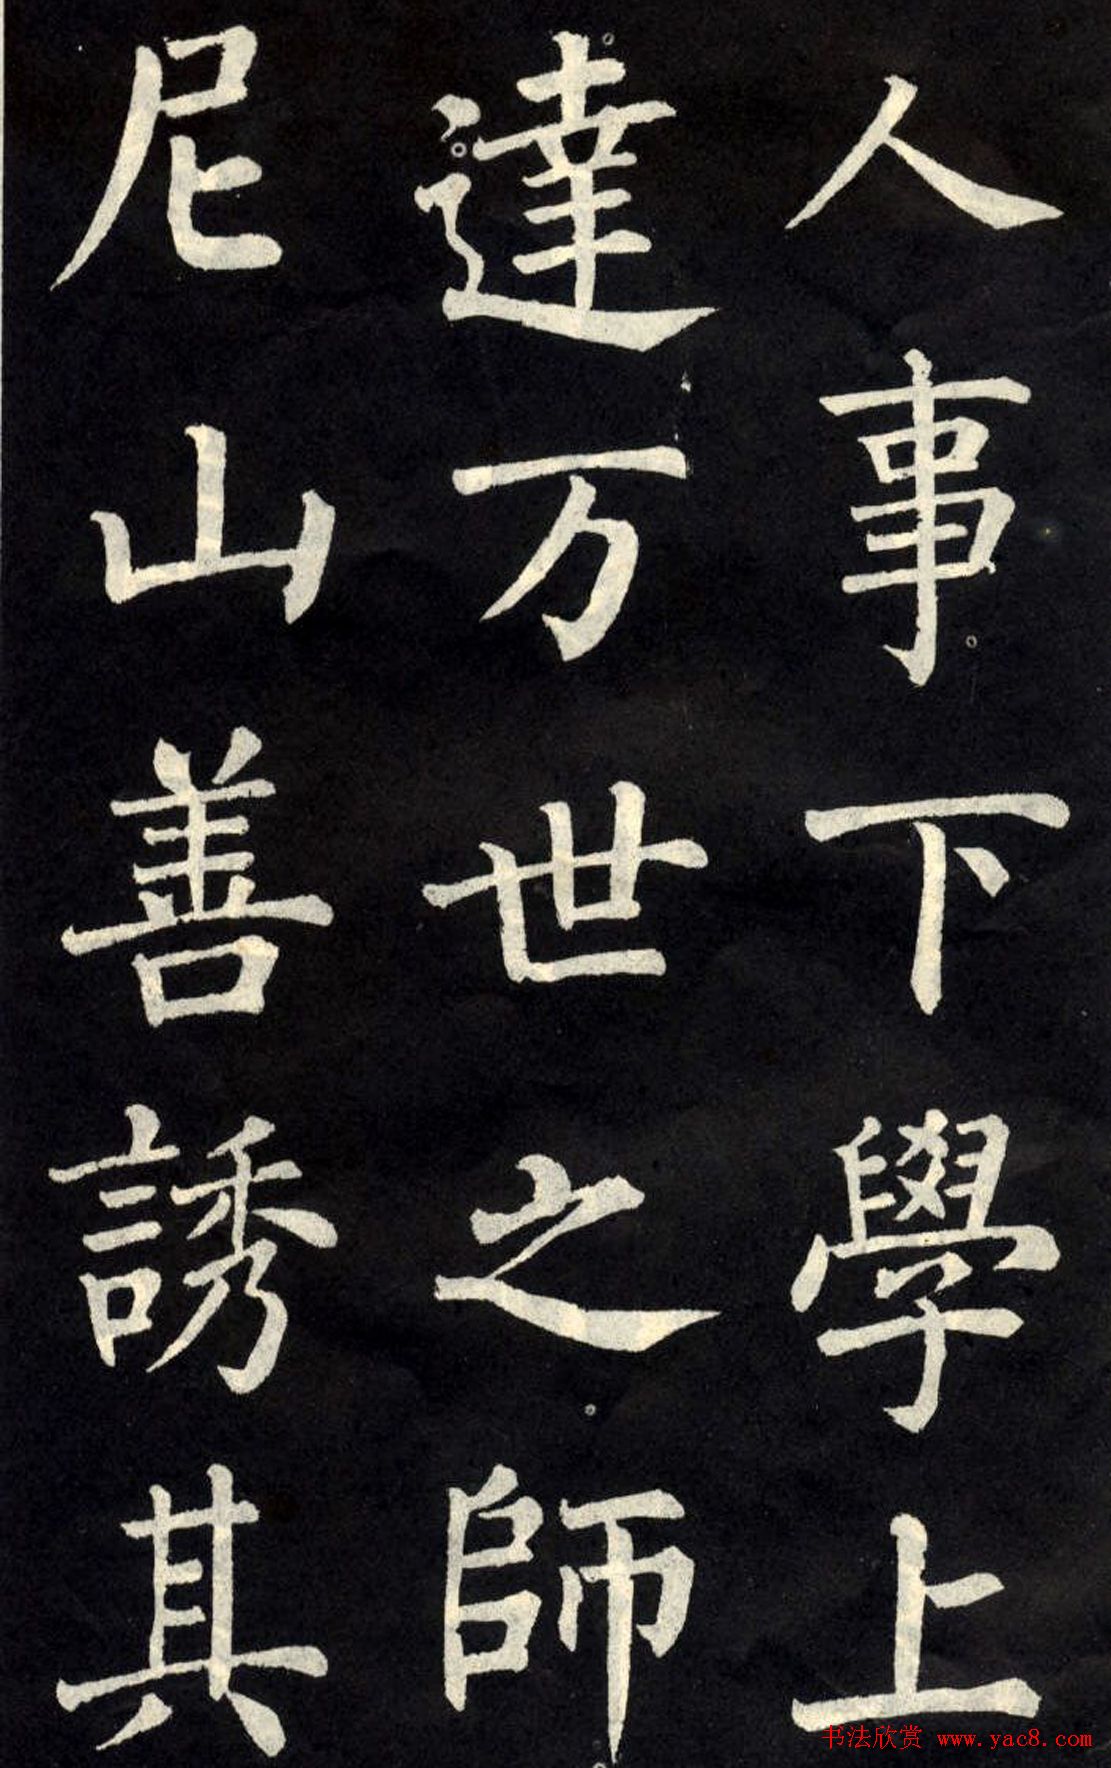 人事下學上
達万世之師
尼山善誘其
书法欣赏 www.yac8.com